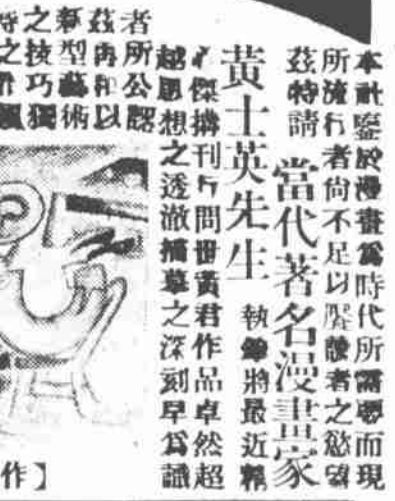 本社鑒於漫畫爲時代所需要而現
所流行者尙不足以饜讀者之慾望
茲特請
當代著名漫畫家
黃士英先生
執 將最近精
心傑搆刊行問世黃君作品卓然超
越思想之透澈描摹之深刻早爲識
者所公認
茲再 以
新型藝術
之技巧獨
特之
作】